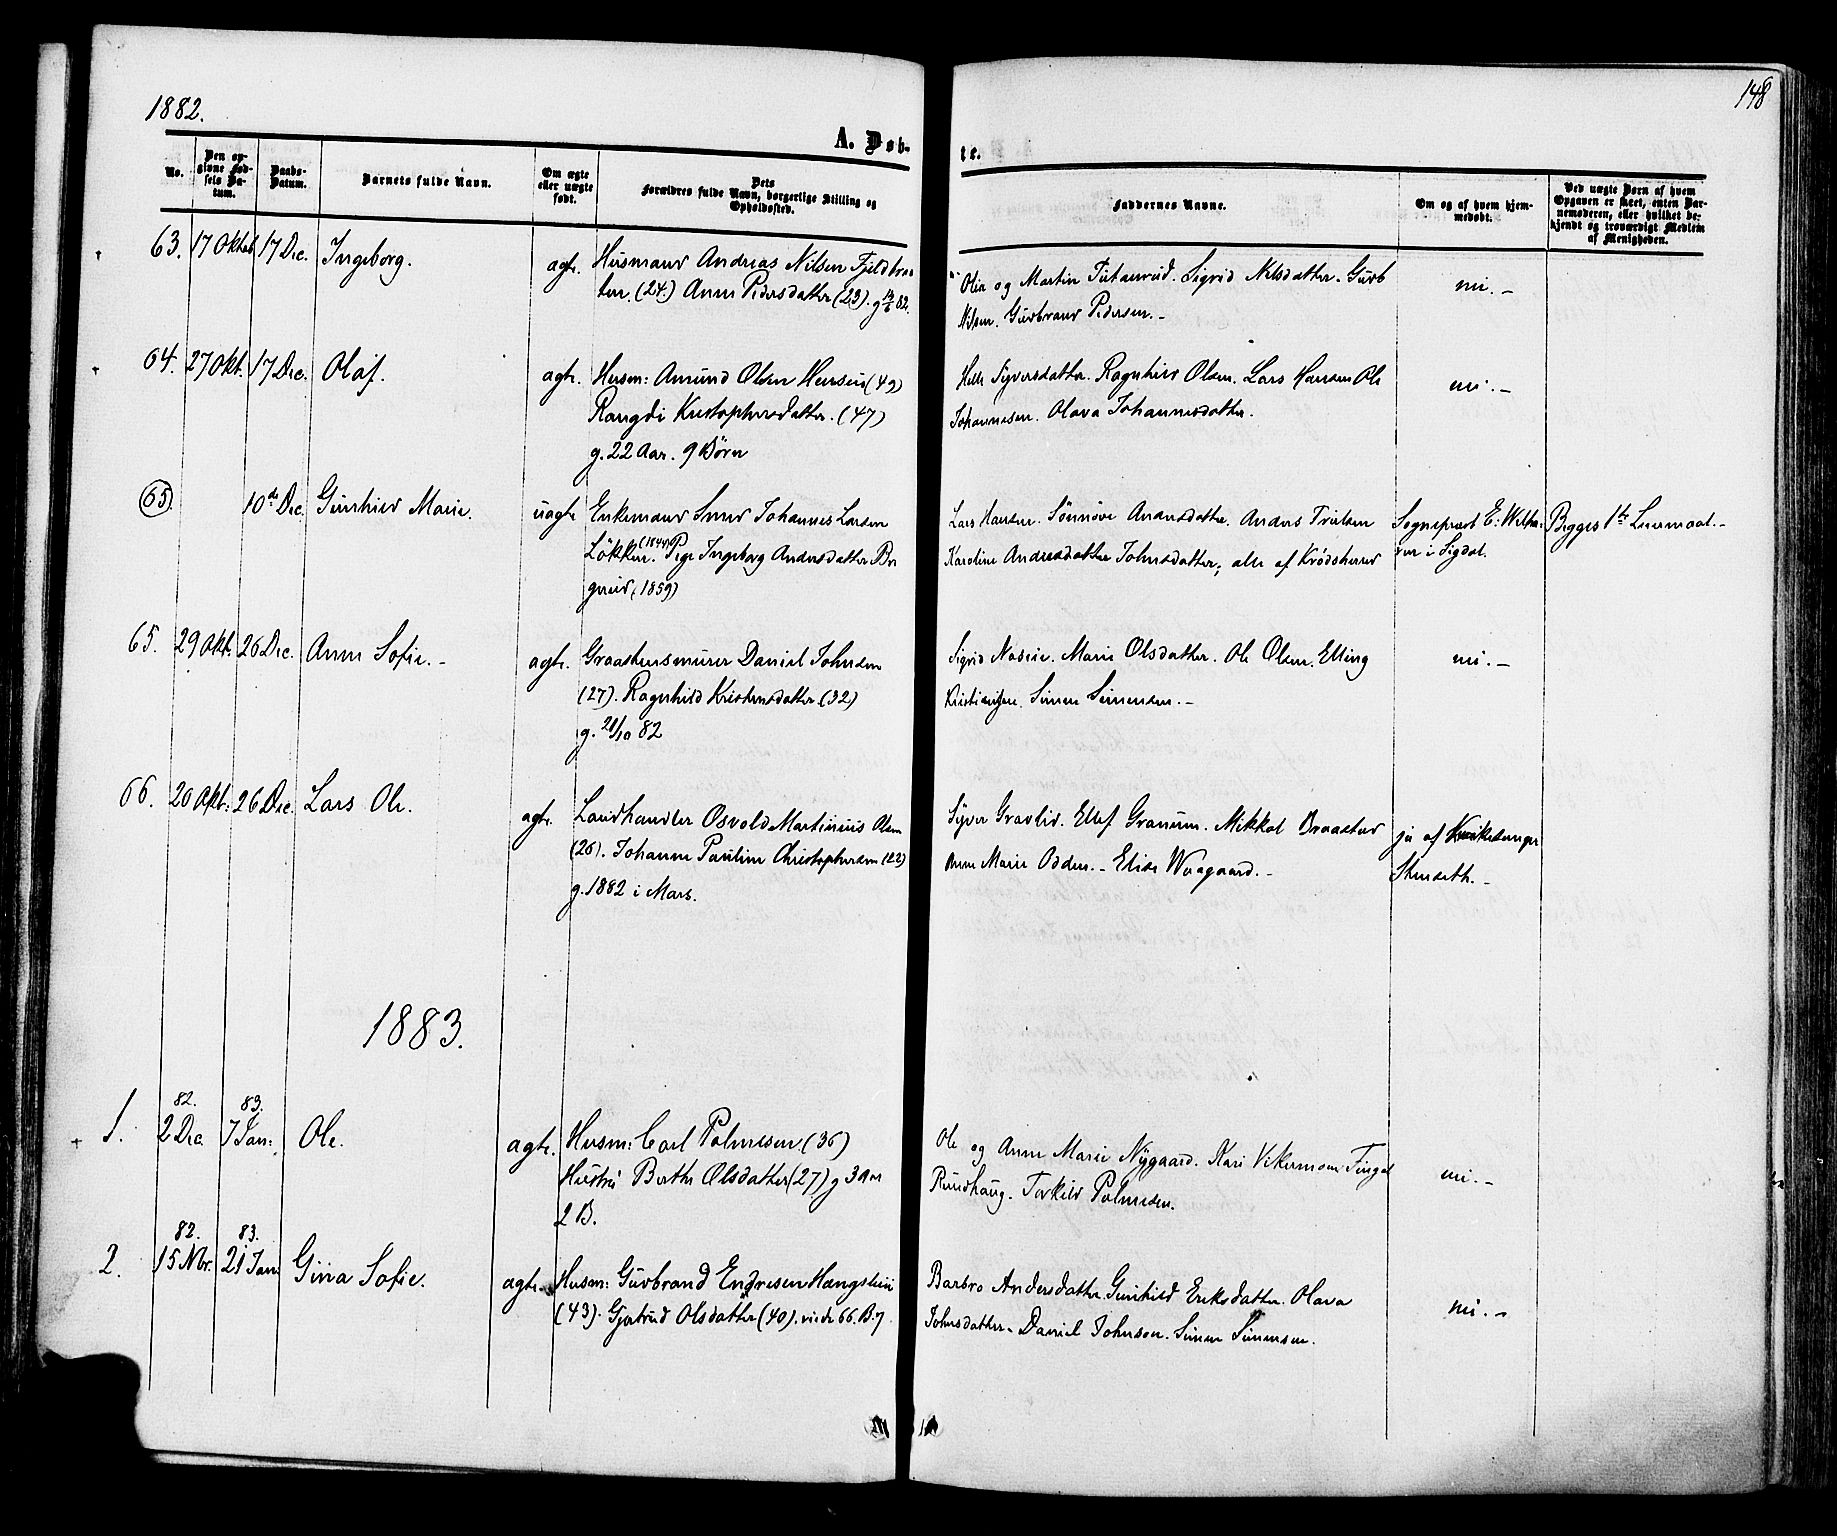 1882.
148
A. Døb-
te.
No.
Den opgivne Fødsels Datum.
Daabs-Datum.
Barnets fulde Navn.
Om ægte eller uægte født.
Forældres fulde Navn, borgerlige Stilling og Dets Opholdssted.
Faddernes Navne.
Om og af hvem hjemmedøbt.
Ved uægte Børn af hvem Opgaven er skeet, enten Barnemoderen, eller hvilket bekjendt og troværdigt Medlem af Menigheden.
63. 17 Oktob. 17 Dec. Ingeborg. ægte. Husmand Andreas Nilsen Fjeldbraa
ten. (24.) Anne Pedersdatter (23). g 82.
Olia og Martin Sigrid Nilsdatter. Gudb
Nilsen. Gudbrand Pedersen. –
nei. –
64. 27 Okt. 17 Dec. Olaf. ægte. Husm: Amund Olsen Hensen (49)
Rangdi Kristophersdatter. (47)
g. 22 Aar. 9 Børn
Helle Syversdatter. Ragnhild Olsen. Lars Hansen Ole
Johannesen. Olava Johannesdatter.
nei. –
(65) 10de Dec. Gunhild Marie. uægte Enkemand Johannes Larsen
Løkken. (1844) Pige Ingeborg Andersdatter
(1859)
Lars Hansen. Sønnøve Andersdatter. Anders
Karoline Andreasdatter Johnsdatter, alle af Krødsherred
Sogneprest E: Wilha
i Sigdal.
Begges 1ste Leiermaal. –
65. 29 Okt. 26 Dec. Anne Sofie. – ægte. Graasteensmurer Daniel Johnsen
(27). Ragnhild Kristensdatter (32)
g. 21/10 82
Sigrid Marie Olsdatter. Ole Olsen. Elling
Kristiansen. Simen Simensen. –
nei. –
66. 20 Okt: 26 Dec. Lars Ole. ægte. Landhandler Osvold Martinius Olsen
(26). Johanne Pauline Christophersen (22)
g. 1882 i Mars.
Syver Gravlid. Ellef Granum. Mikkel Braastad
Anne Marie Odden. – Elise Waagaard. –
ja af
Stenseth. –
1883.
82. 83.
1. 2 Dec. 7 Jan: Ole. ægte. Husm: Carl Palmesen (36)
Hustru Berthe Olsdatter (27) g 3 Aar
2 B.
Ole og Anne Marie Nygaard. Kari Vikermoen
Rundhaug. Torkild Palmesen.
nei. –
82. 83.
2. 15 Nbr. 21 Jan: Gina Sofie. ægte. Husm: Gudbrand Endresen Hængsleiii
(43). Gjertrud Olsdatter (40). viede 66. B. 7
Barbro Andersdatter. Gunhild Eriksdatter. Olava
Johnsdatter. Daniel Johnsen. Simen Simensen.
nei. –